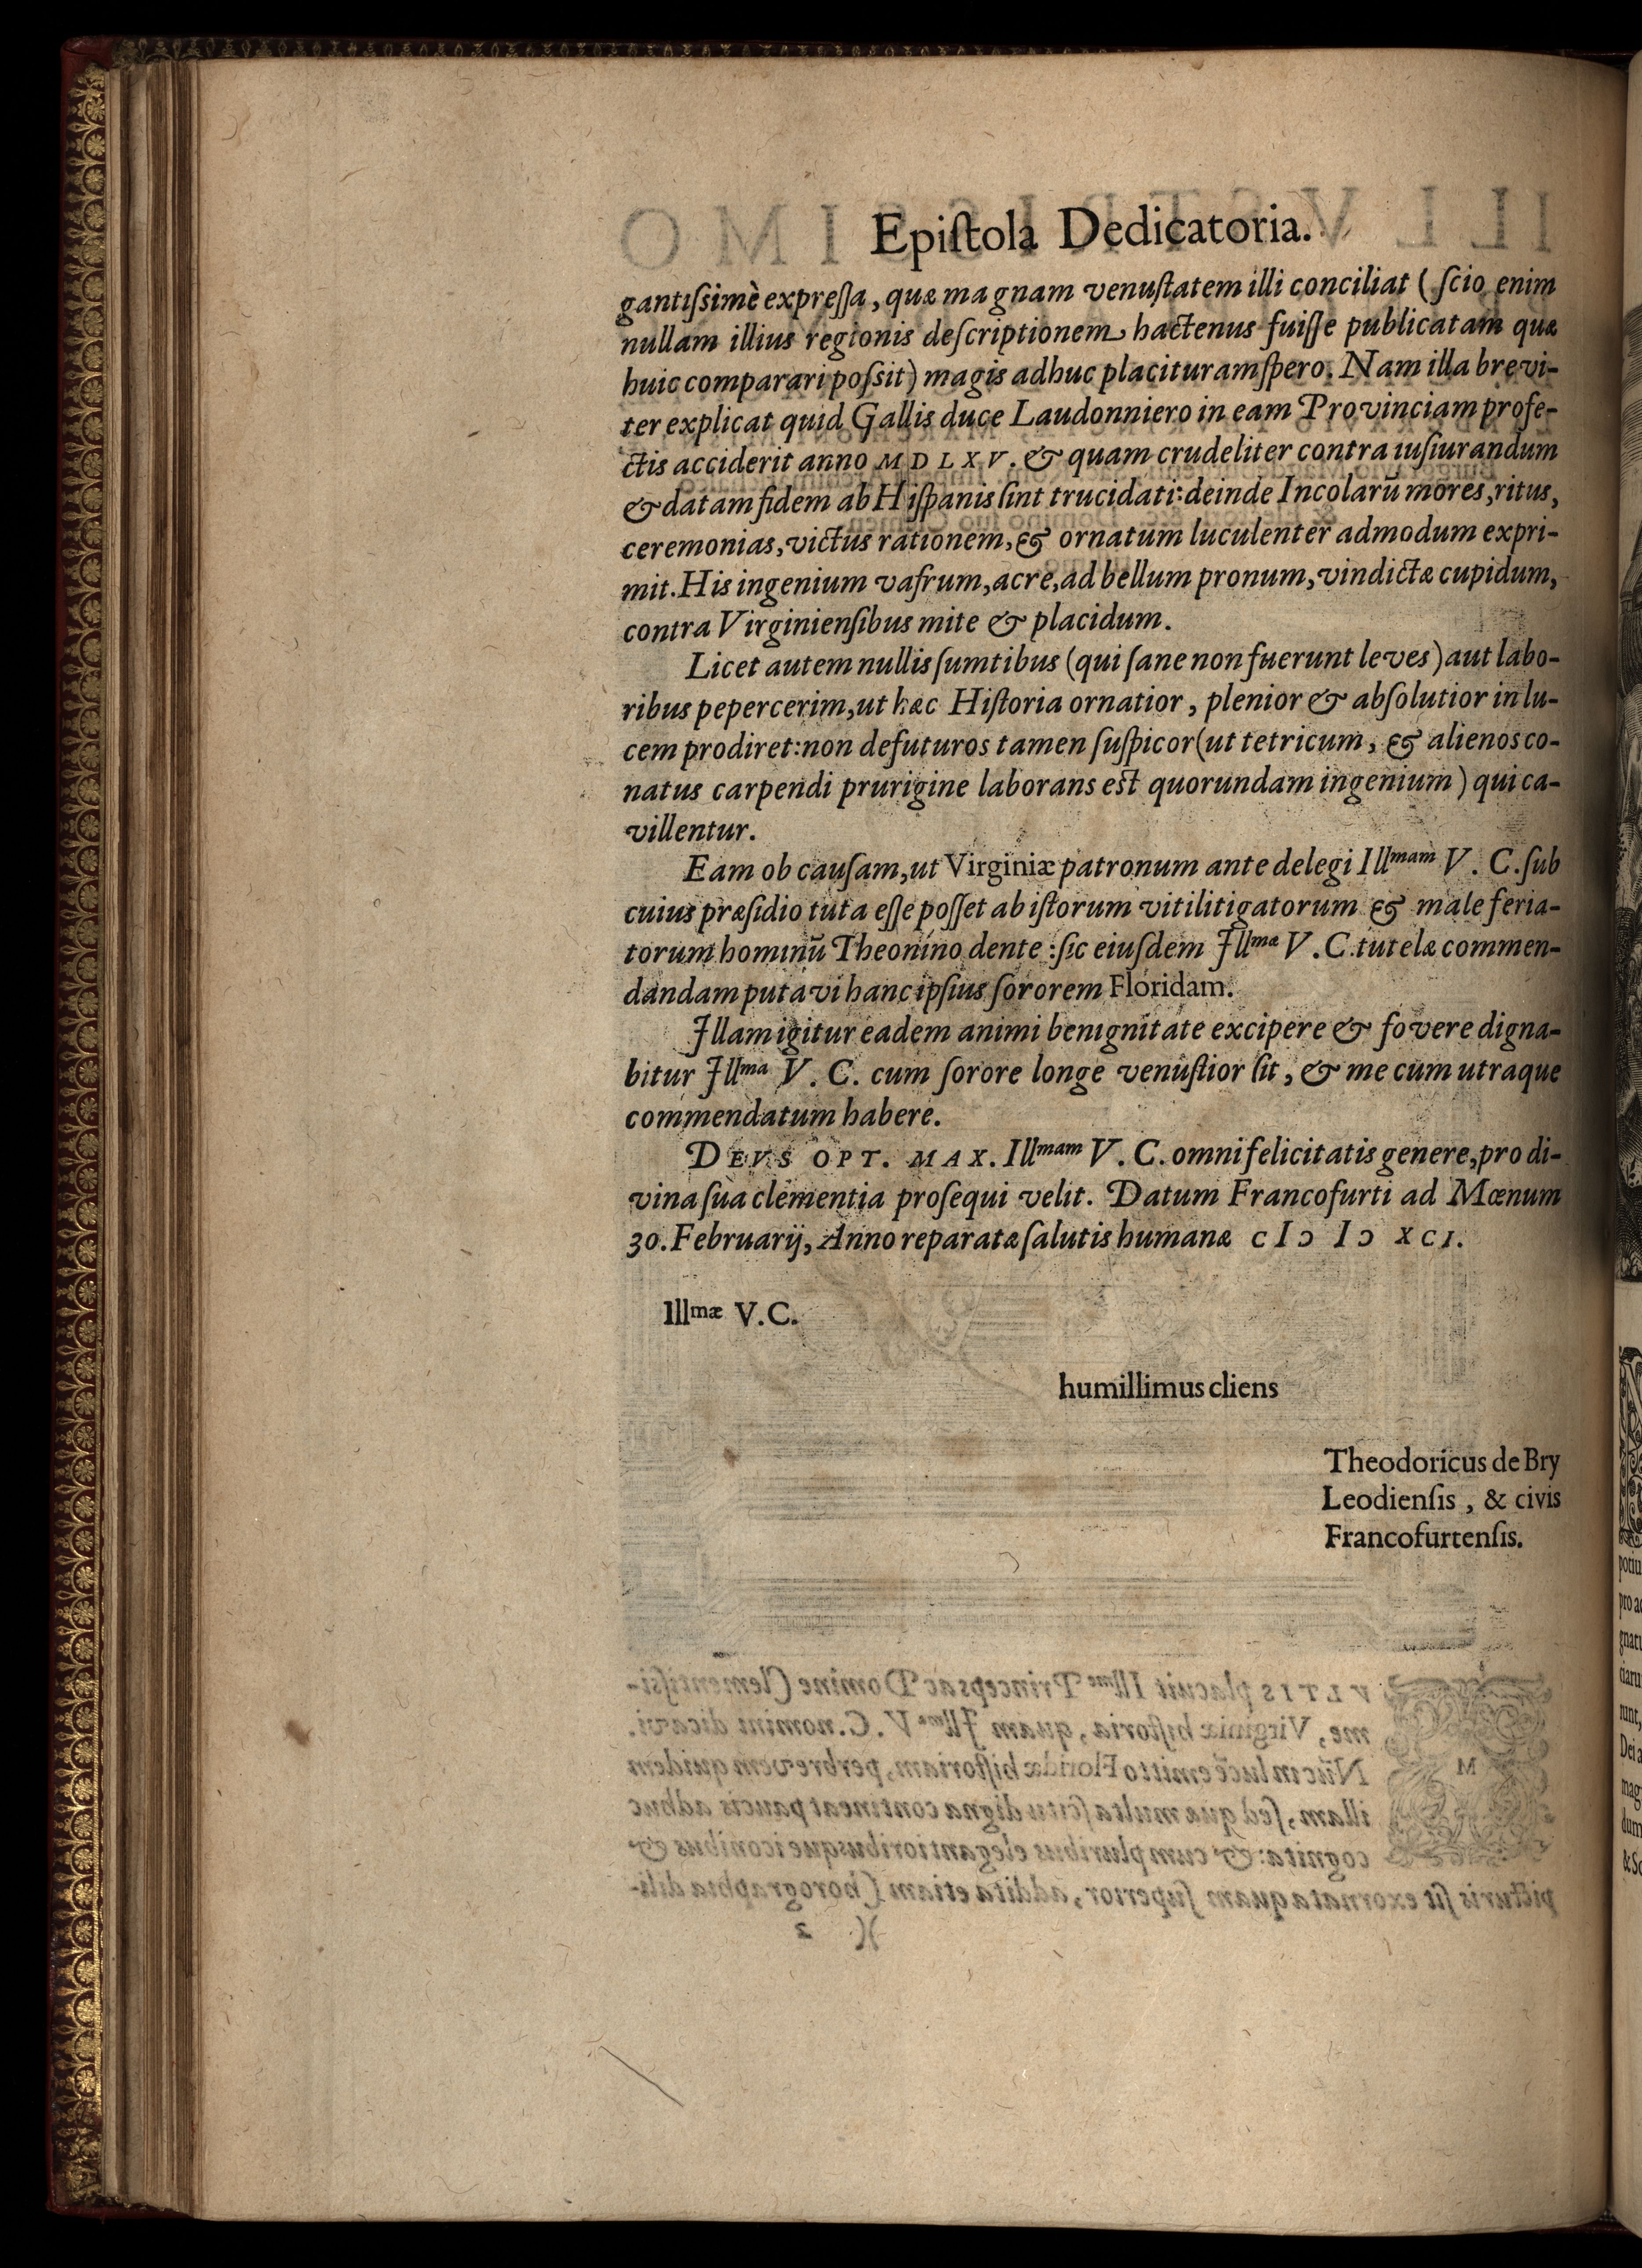 Epiſtola Dedicatoria.
gantiſsimè expreſſa, quæ magnam venuſtatem illi conciliat (ſcio enim
nullam illius regionis deſcriptionem hactenus fuiſſe publicatam quæ
huic comparari poſsit) magis adhuc placituram ſpero. Nam illa brevi-
ter explicat quid Gallis duce Laudonniero in eam Provinciam profe-
ctis acciderit anno MDLXV. & quam crudeliter contra iuſiurandum
& datam fidem ab Hiſpanis ſint trucidati: deinde Incolarū mores, ritus,
ceremonias, victus rationem, & ornatum luculenter admodum expri-
mit. His ingenium vafrum, acre, ad bellum pronum, vindictæ cupidum,
contra Virginienſibus mite & placidum.
Licet autem nullis ſumtibus (qui ſane non fuerunt leves) aut labo-
ribus pepercerim, ut hæc Hiſtoria ornatior, plenior & abſolutior in lu-
cem prodiret: non defuturos tamen ſuſpicor (ut tetricum, & alienos co-
natus carpendi prurigine laborans est quorundam ingenium) qui ca-
villentur.
Eam ob cauſam, ut Virginiæ patronum ante delegi Illmam V. C. ſub
cuius præſidio tuta eſſe poſſet ab iſtorum vitilitigatorum & male feria-
torum hominū Theonino dente: ſic eiuſdem Illmæ V. C. tutelæ commen-
dandam putavi hanc ipſius ſororem Floridam.
Illam igitur eadem animi benignitate excipere & fovere digna-
bitur Illma V. C. cum ſorore longe venuſtior ſit, & me cum utraque
commendatum habere.
DEVS OPT. MAX. Illmam V. C. omni felicitatis genere, pro di-
vina ſua clementia proſequi velit. Datum Francofurti ad Mœnum
30. Februarij, Anno reparatæ ſalutis humanæ cIↄ Iↄ XCI.
Illmæ V. C.
humillimus cliens
Theodoricus de Bry
Leodienſis, & civis
Francofurtenſis.